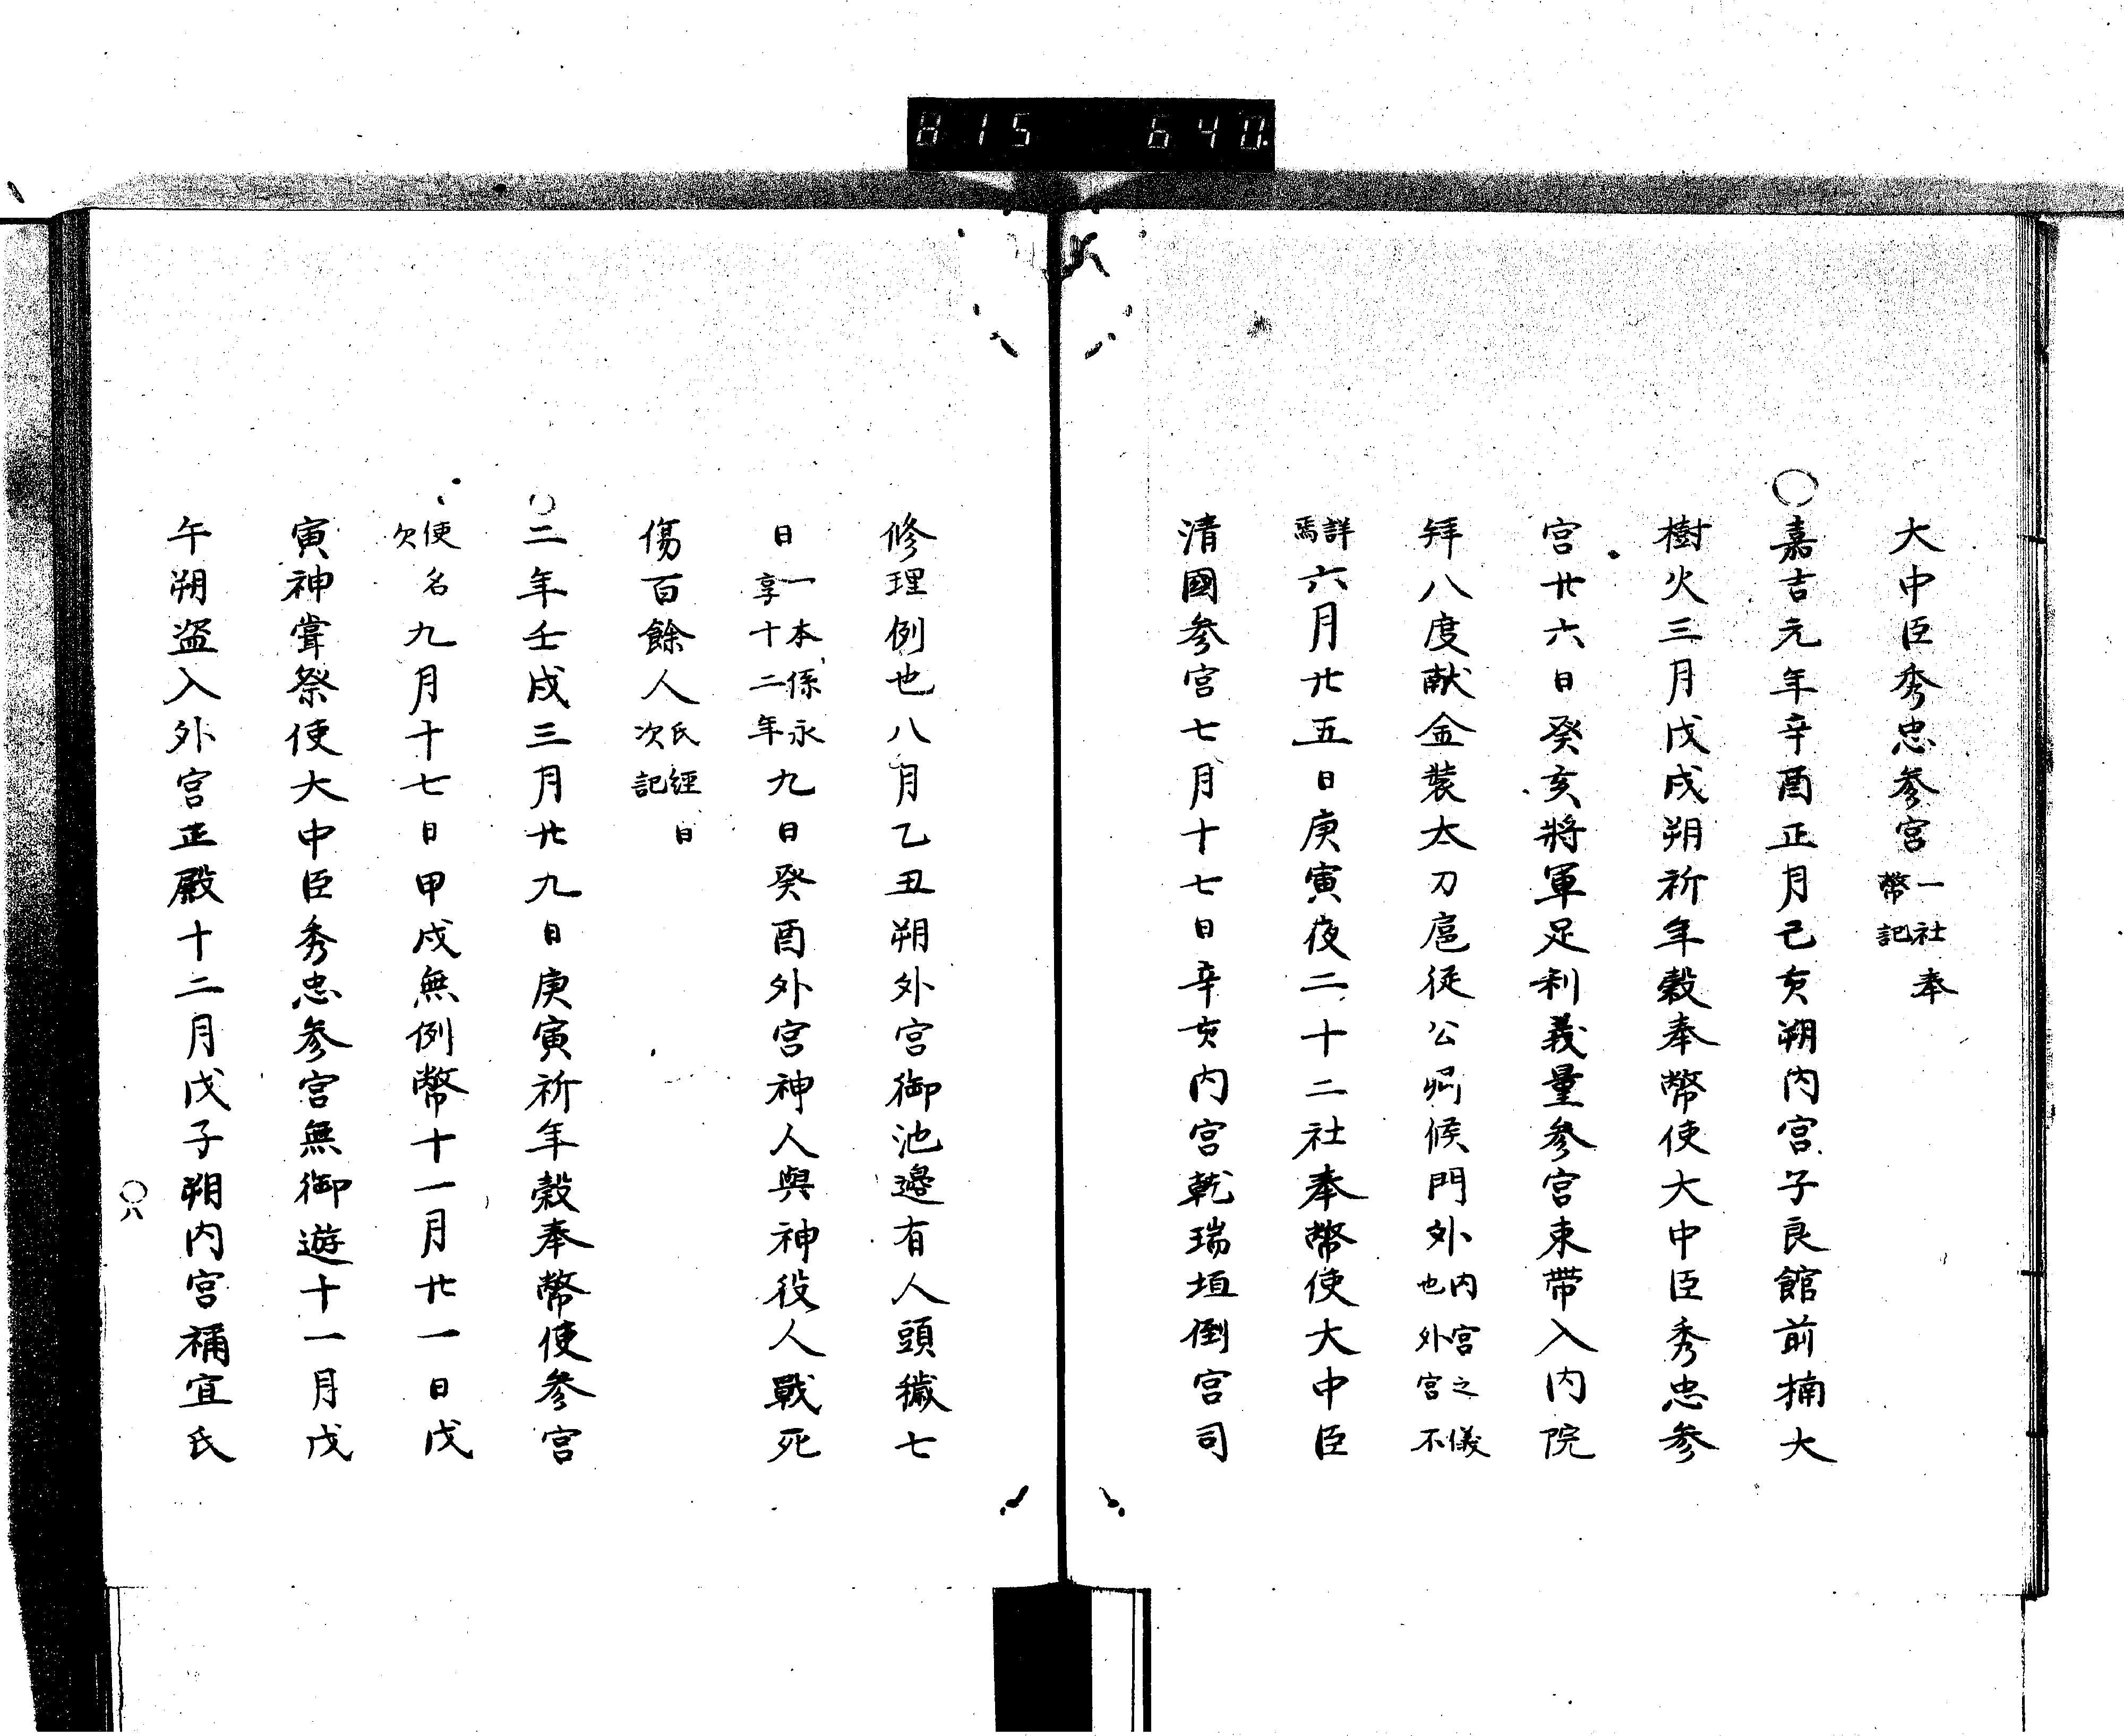 815 640
大中臣秀忠参宮一社奉幣記
○嘉吉元年辛酉正月己亥朔内宮子良館前楠大
樹火三月戊戌朔祈年穀奉幣使大中臣秀忠参
宮廿六日癸亥將軍足利義量参宮束帶入内院
拜八度献金裝太刀扈従公卿候門外内宮之儀也外宮不
詳焉六月廿五日庚寅夜二十二社奉幣使大中臣
清國参宮七月十七日辛亥内宮乾瑞垣倒宮司
修理例也八月乙丑朔外宮御池邊有人頭穢七
日一本係永享十二年九日癸酉外宮神人與神役人戰死
傷百餘人氏經日次記
○二年壬戌三月廿九日庚寅祈年穀奉幣使参宮
使名欠九月十七日甲戌無例幣十一月廿一日戊
寅神甞祭使大中臣秀忠参宮無御遊十一月戊
午朔盗入外宮正殿十二月戊子朔内宮補宜氏
○八